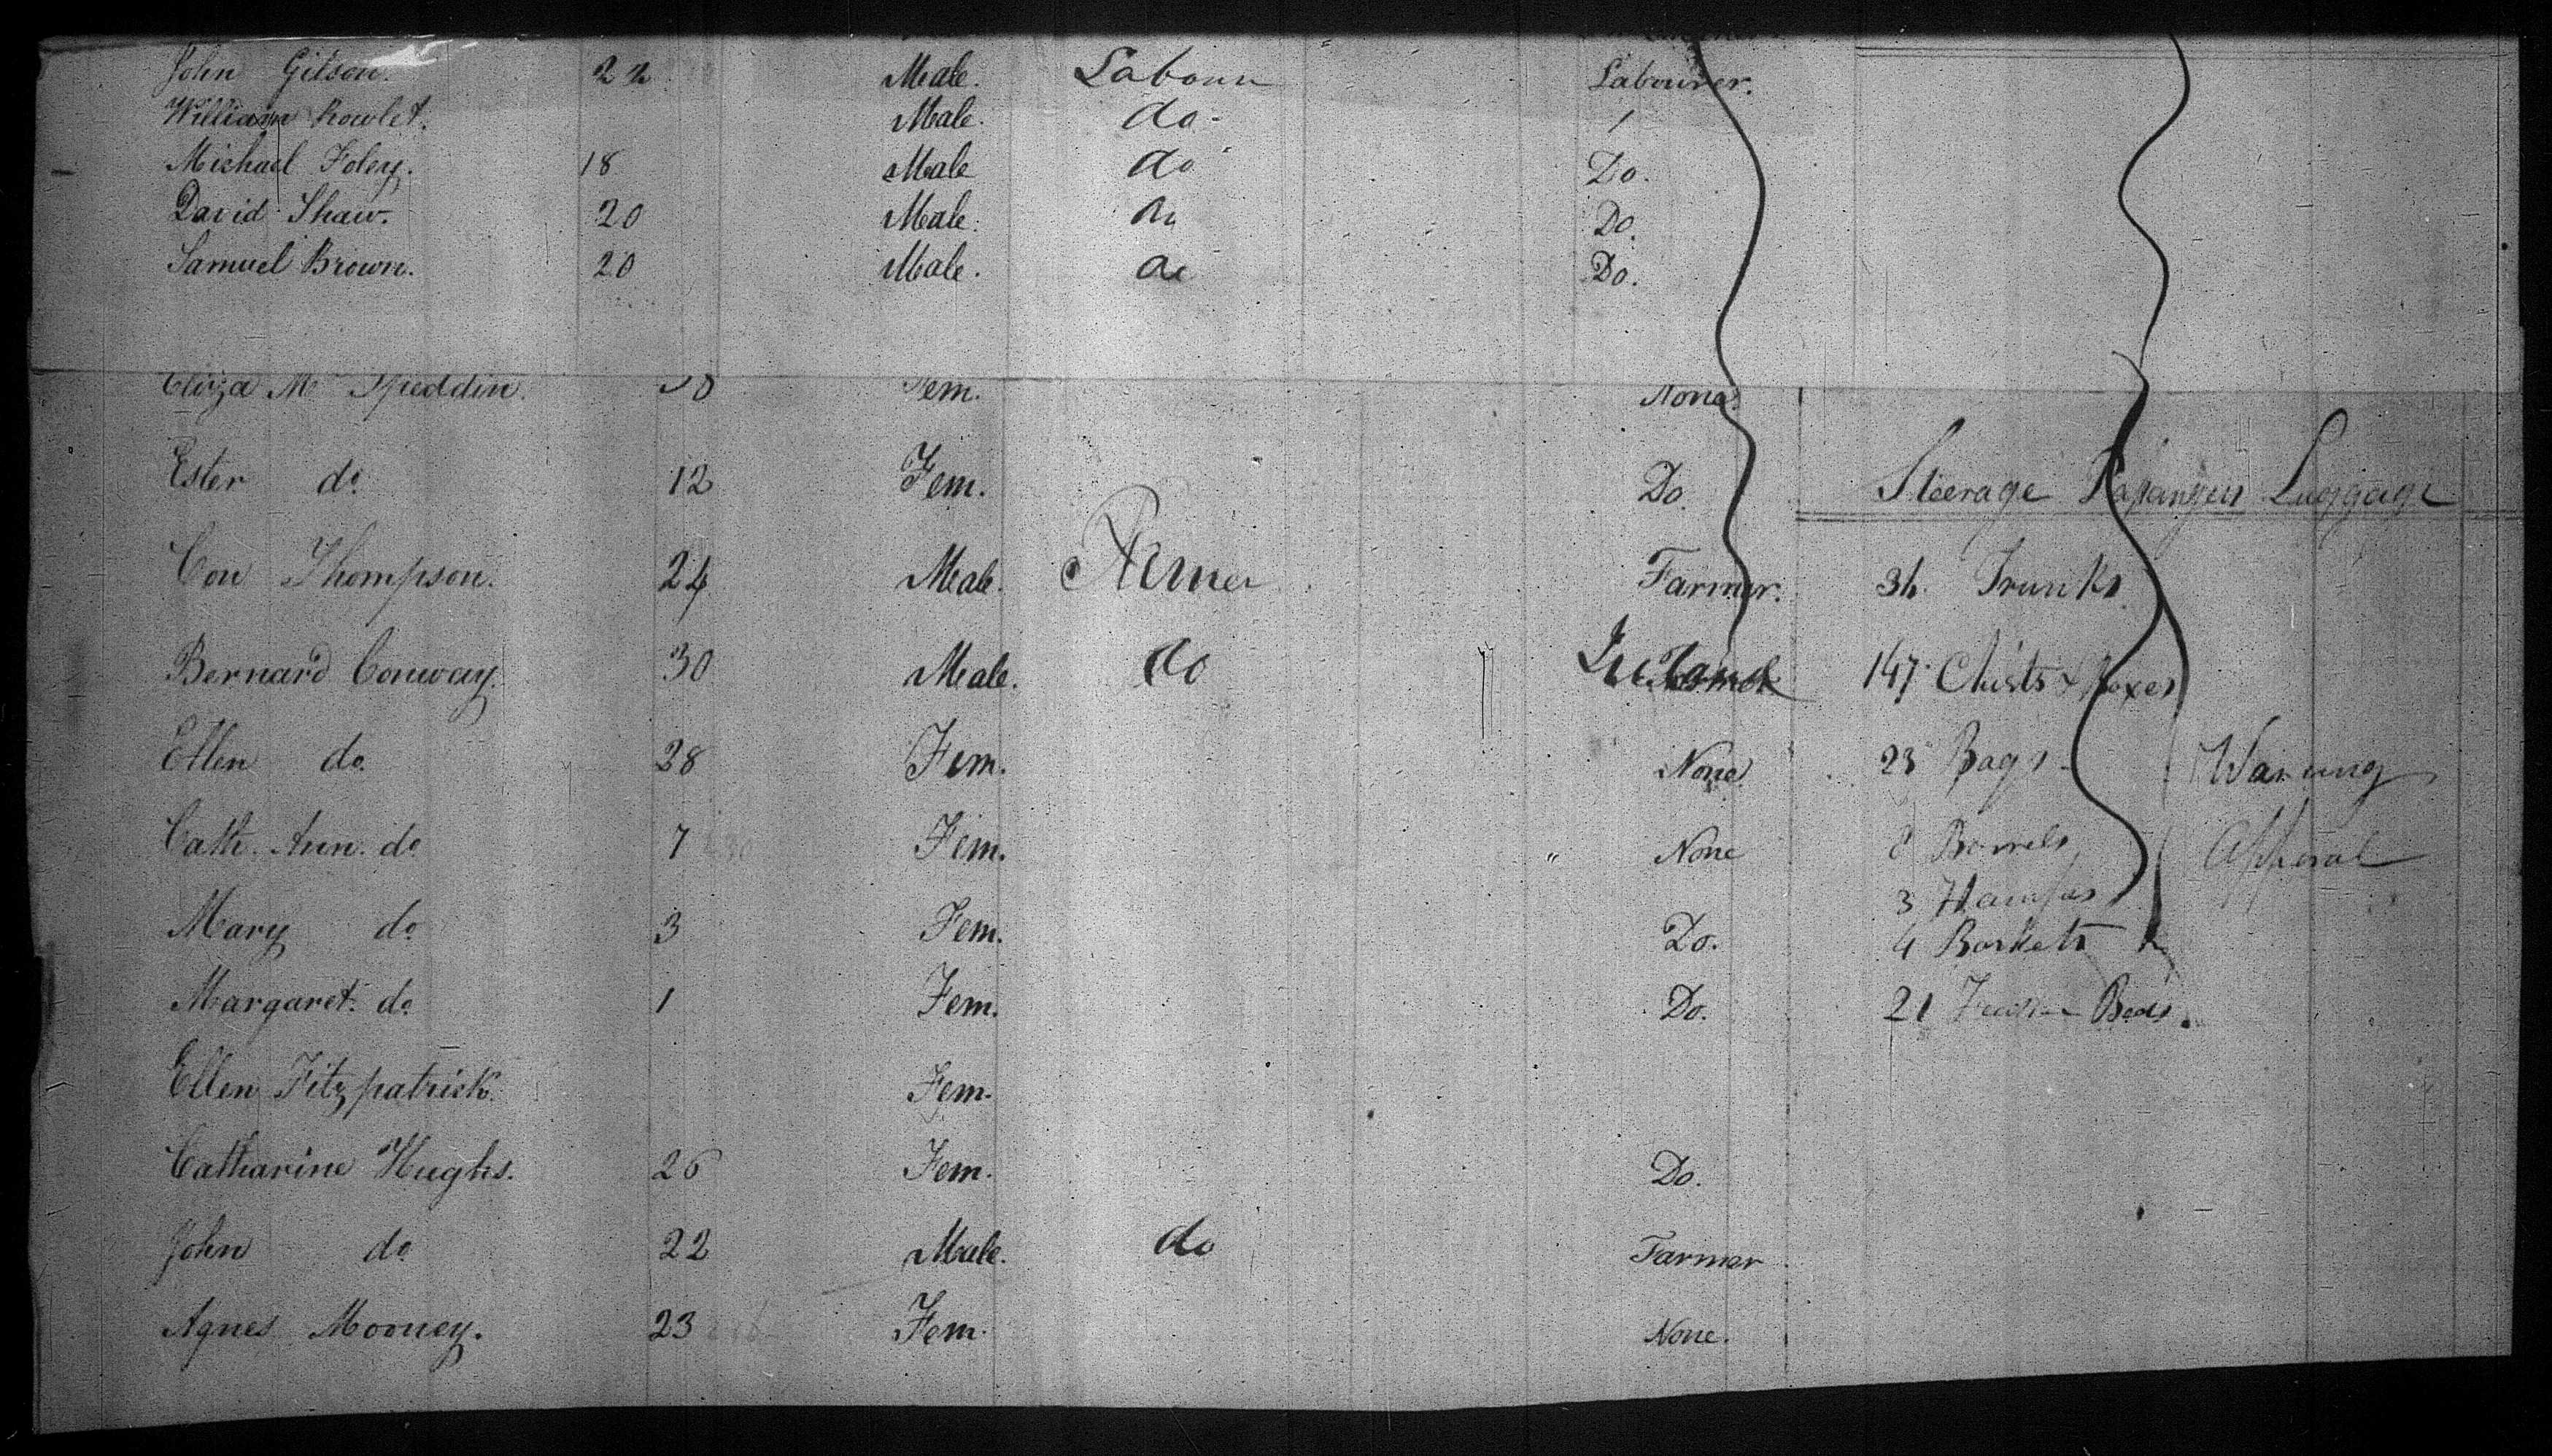 John Gilson. 22 Male. Labour Labourer.
William Rowlet. Male. do
Michael Foley. 18 Male do Do.
David Shaw. 20 Male. Do.
Samuel Brown. 20 Male. do Do.
Eliza Mc Speddin. Fem. None
Ester do. 12 Fem. Do. Steerage Passengers Luggage
Con Thompson. 24 Male. Farmer. 36 Trunks
Bernard Conway. 30 Male. do Ireland 147 Chists & Boxes
Ellen do. 28 Fem. None 23 Bags Waring
Cath. Ann. do 7 Fem. " None 8 Barrels Apperal
3 Hampers
Mary do. 3 Fem. Do. 4 Baskets
Margaret. do. 1 Fem. Do. 21 Beds.
Ellen Fitzpatrick. Fem.
Catharine Hughs. 26 Fem. Do.
John do 22 Male. do Farmer
Agnes Mooney. 23 Fem. None.